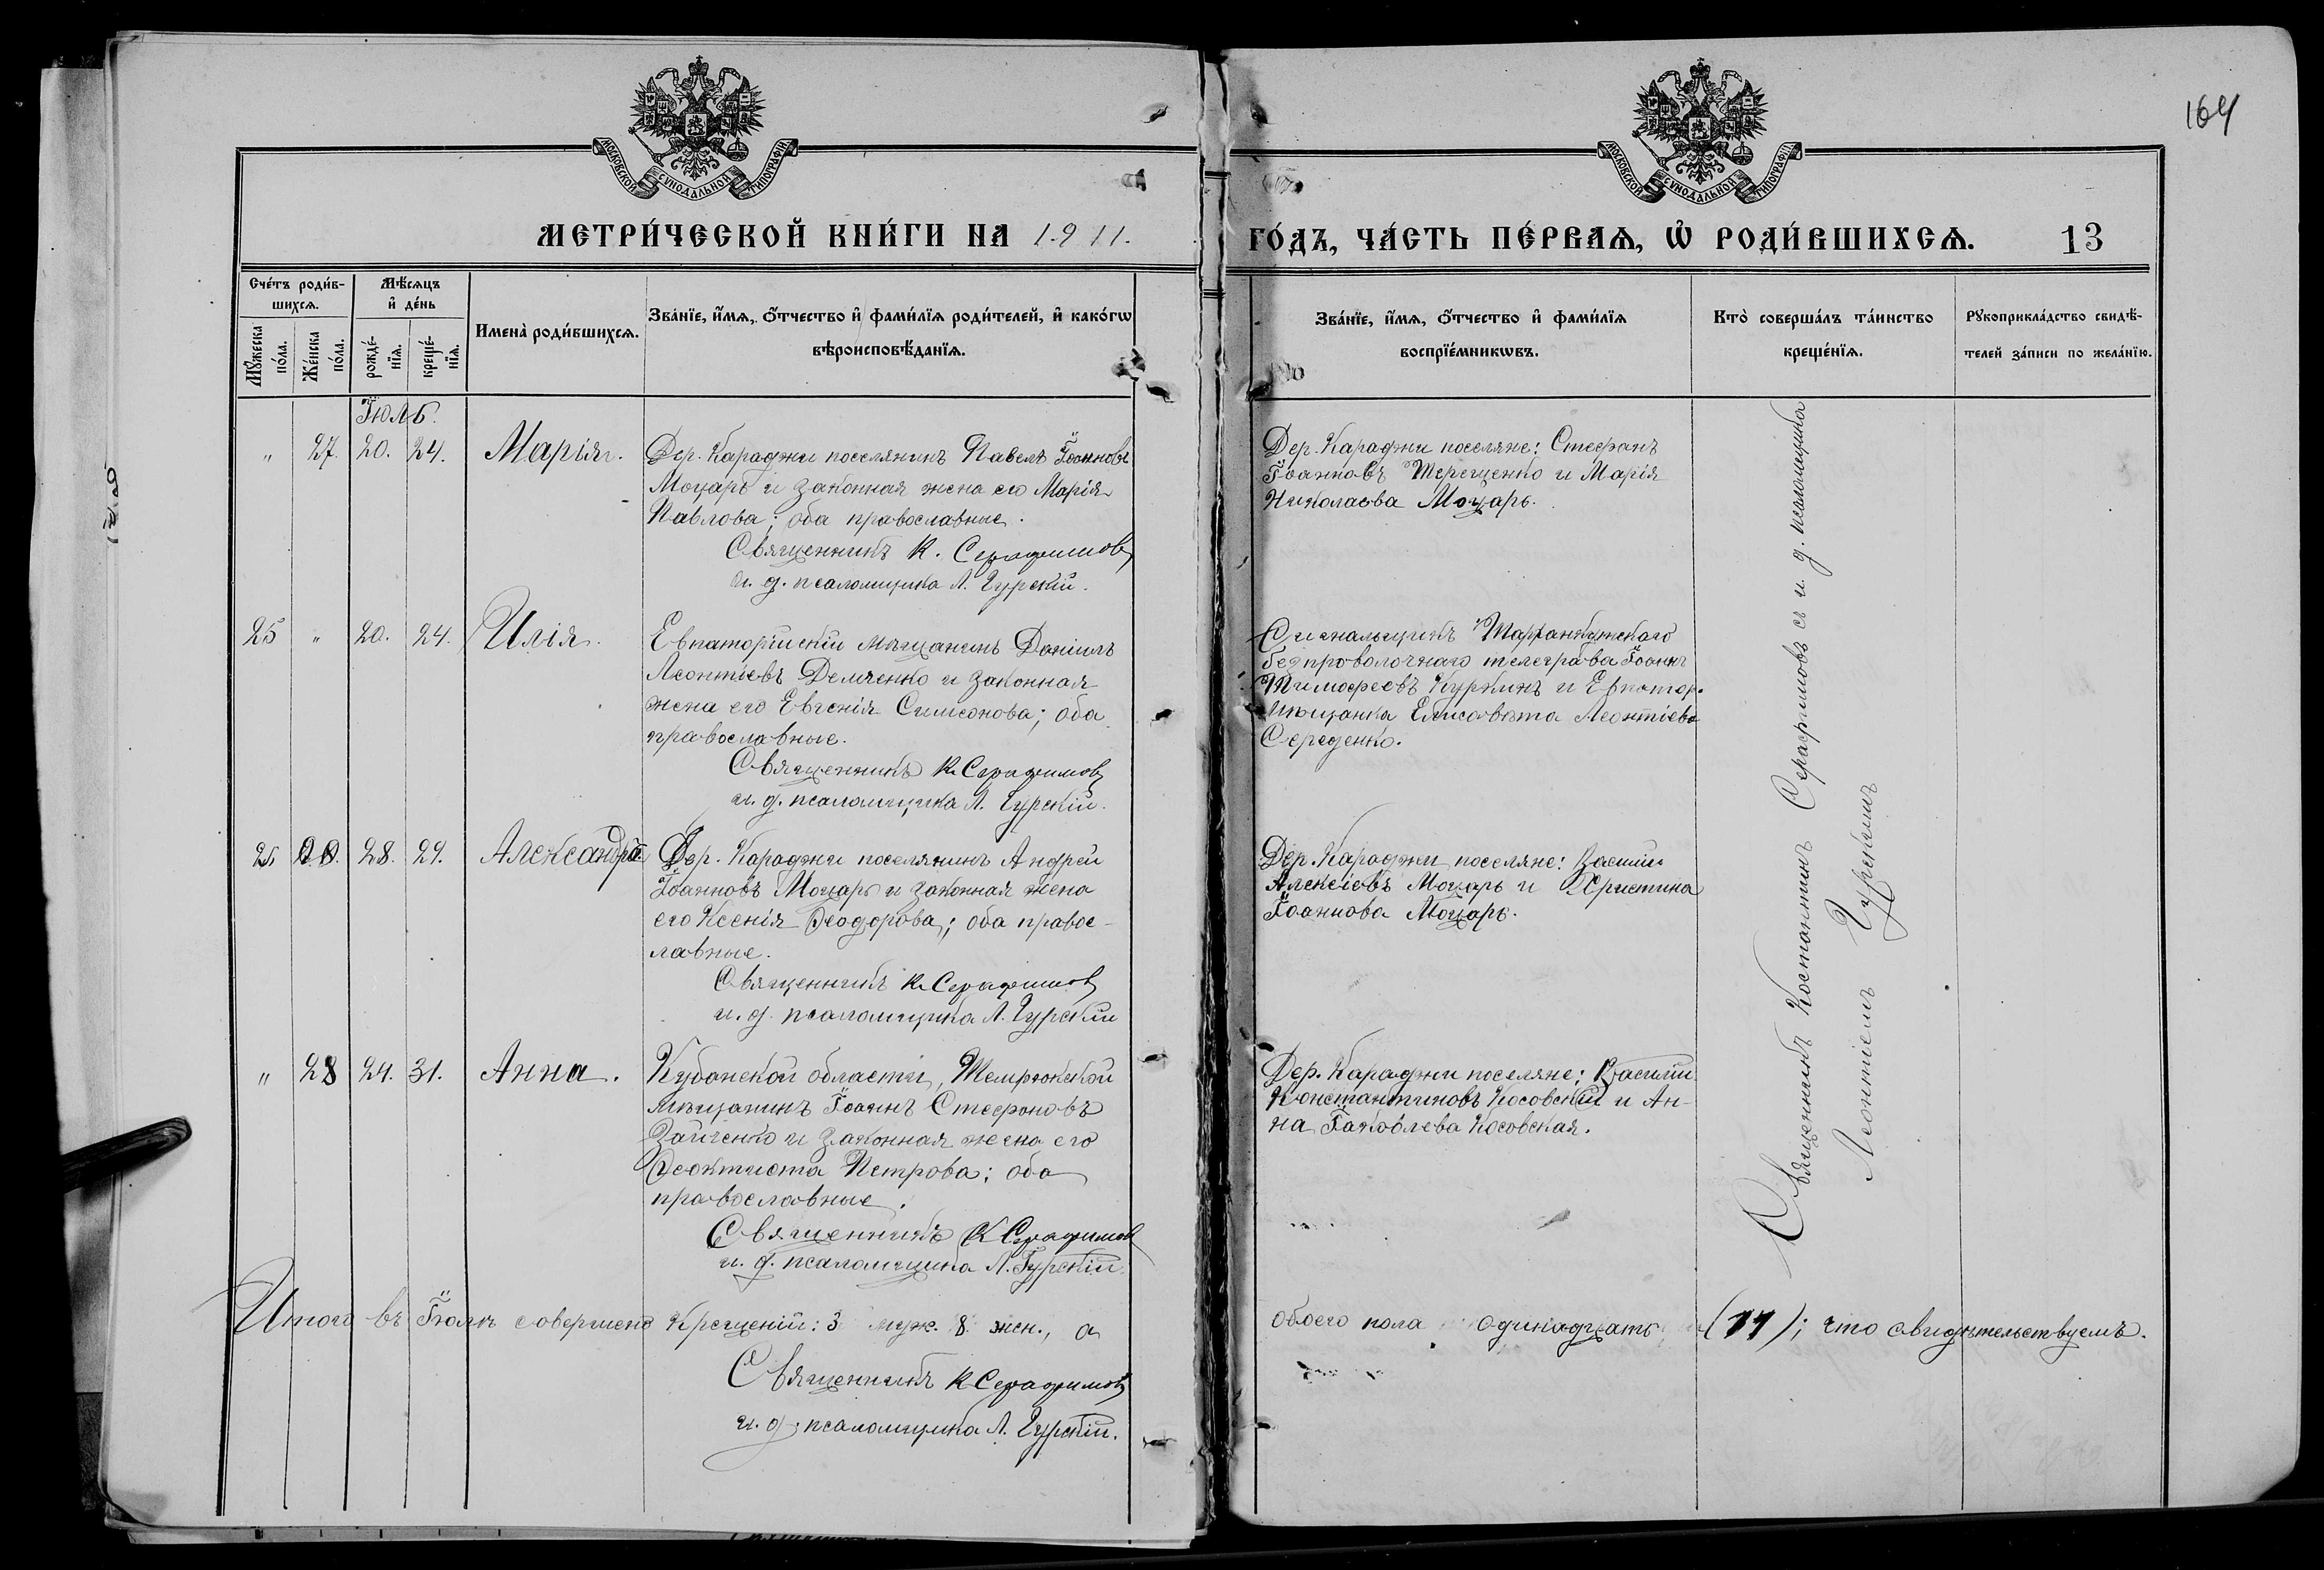 164
МОСКОВСКОЙ СѴНОДАЛЬНОЙ ТИПОГРАФІИ
МОСКОВСКОЙ СѴНОДАЛЬНОЙ ТИПОГРАФІИ
МЕТРИ́ЧЕСКОЙ КНИ́ГИ НА 1911. ГО́ДЪ, ЧА́СТЬ ПЕ́РВАѦ, Ѡ҆ РОДИ́ВШИХСѦ. 13
Сче́тъ роди́в-
шихсѧ.
Мꙋ́жеска
по́ла.
Же́нска
по́ла.
Мѣ́сѧцъ
и҆ де́нь
рожде́-
нїѧ.
креще́-
нїѧ.
Имена̀ роди́вшихсѧ.
Зва́нїе, и҆́мѧ, ѻ҆́тчество и҆ фами́лїѧ роди́телей, и҆ како́гѡ
вѣроисповѣ́данїѧ.
Зва́нїе, и҆́мѧ, ѻ҆́тчество и҆ фами́лїѧ
воспрїе́мникѡвъ.
Кто̀ соверша́лъ та́инство
креще́нїѧ.
Рꙋкоприкла́дство свидѣ́-
телей за́писи по жела́нїю.
Іюль.
" 27. 20. 24. Марія.
Дер. Караджи поселянинъ Павелъ Іоанновъ
Моцарь и законная жена его Марія
Павлова; оба православные.
Священникъ К. Серафимовъ
и. д. псаломщика Л. Гурскій.
Дер. Караджи поселяне: Стефанъ
Іоанновъ Терещенко и Марія
Николаева Моцарь.
25 " 20. 24. Илія.
Евпаторійскій мѣщанинъ Даніилъ
Леонтіевъ Демченко и законная
жена его Евгенія Симеонова; оба
православные.
Священникъ К. Серафимовъ
и. д. псаломщика Л. Гурскій.
Сигнальщикъ
безпроволочнаго телеграфа Іоаннъ
Тимофеевъ Куркинъ и Евпатор.
мѣщанка Елисавета Леонтіева
Середенко.
28. 24. Александра
Дер. Караджи поселянинъ Андрей
Іоанновъ Моцарь и законная жена
его Ксенія Ѳеодорова; оба правос-
лавные.
Священникъ К. Серафимовъ
и. д. псаломщика Л. Гурскій
Дер. Караджи поселяне: Василій
Алексіевъ Моцарь и Христина
Іоаннова Моцарь.
" 28 24. 31. Анна.
Кубанской области, Темрюкской
мѣщанинъ Іоаннъ Стефановъ
Зайченко и законная жена его
Ѳеоктиста Петрова; оба
православные.
Священникъ К Серафимовъ
и. д. псаломщика Л. Гурскій
Дер. Караджи поселяне: Василій
Константиновъ Косовскій и Ан-
на Іаковлева Косовская.
Священникъ Константинъ Серафимовъ съ и. д. псаломщика
Леонтіемъ Гурскимъ
Итого въ Іюлѣ совершено крещеній: 3 муж. 8. жен., а обоего пола одинадцать (11); что свидѣтельствуемъ.
Священникъ К Серафимовъ
и. д. псаломщика Л. Гурскій.